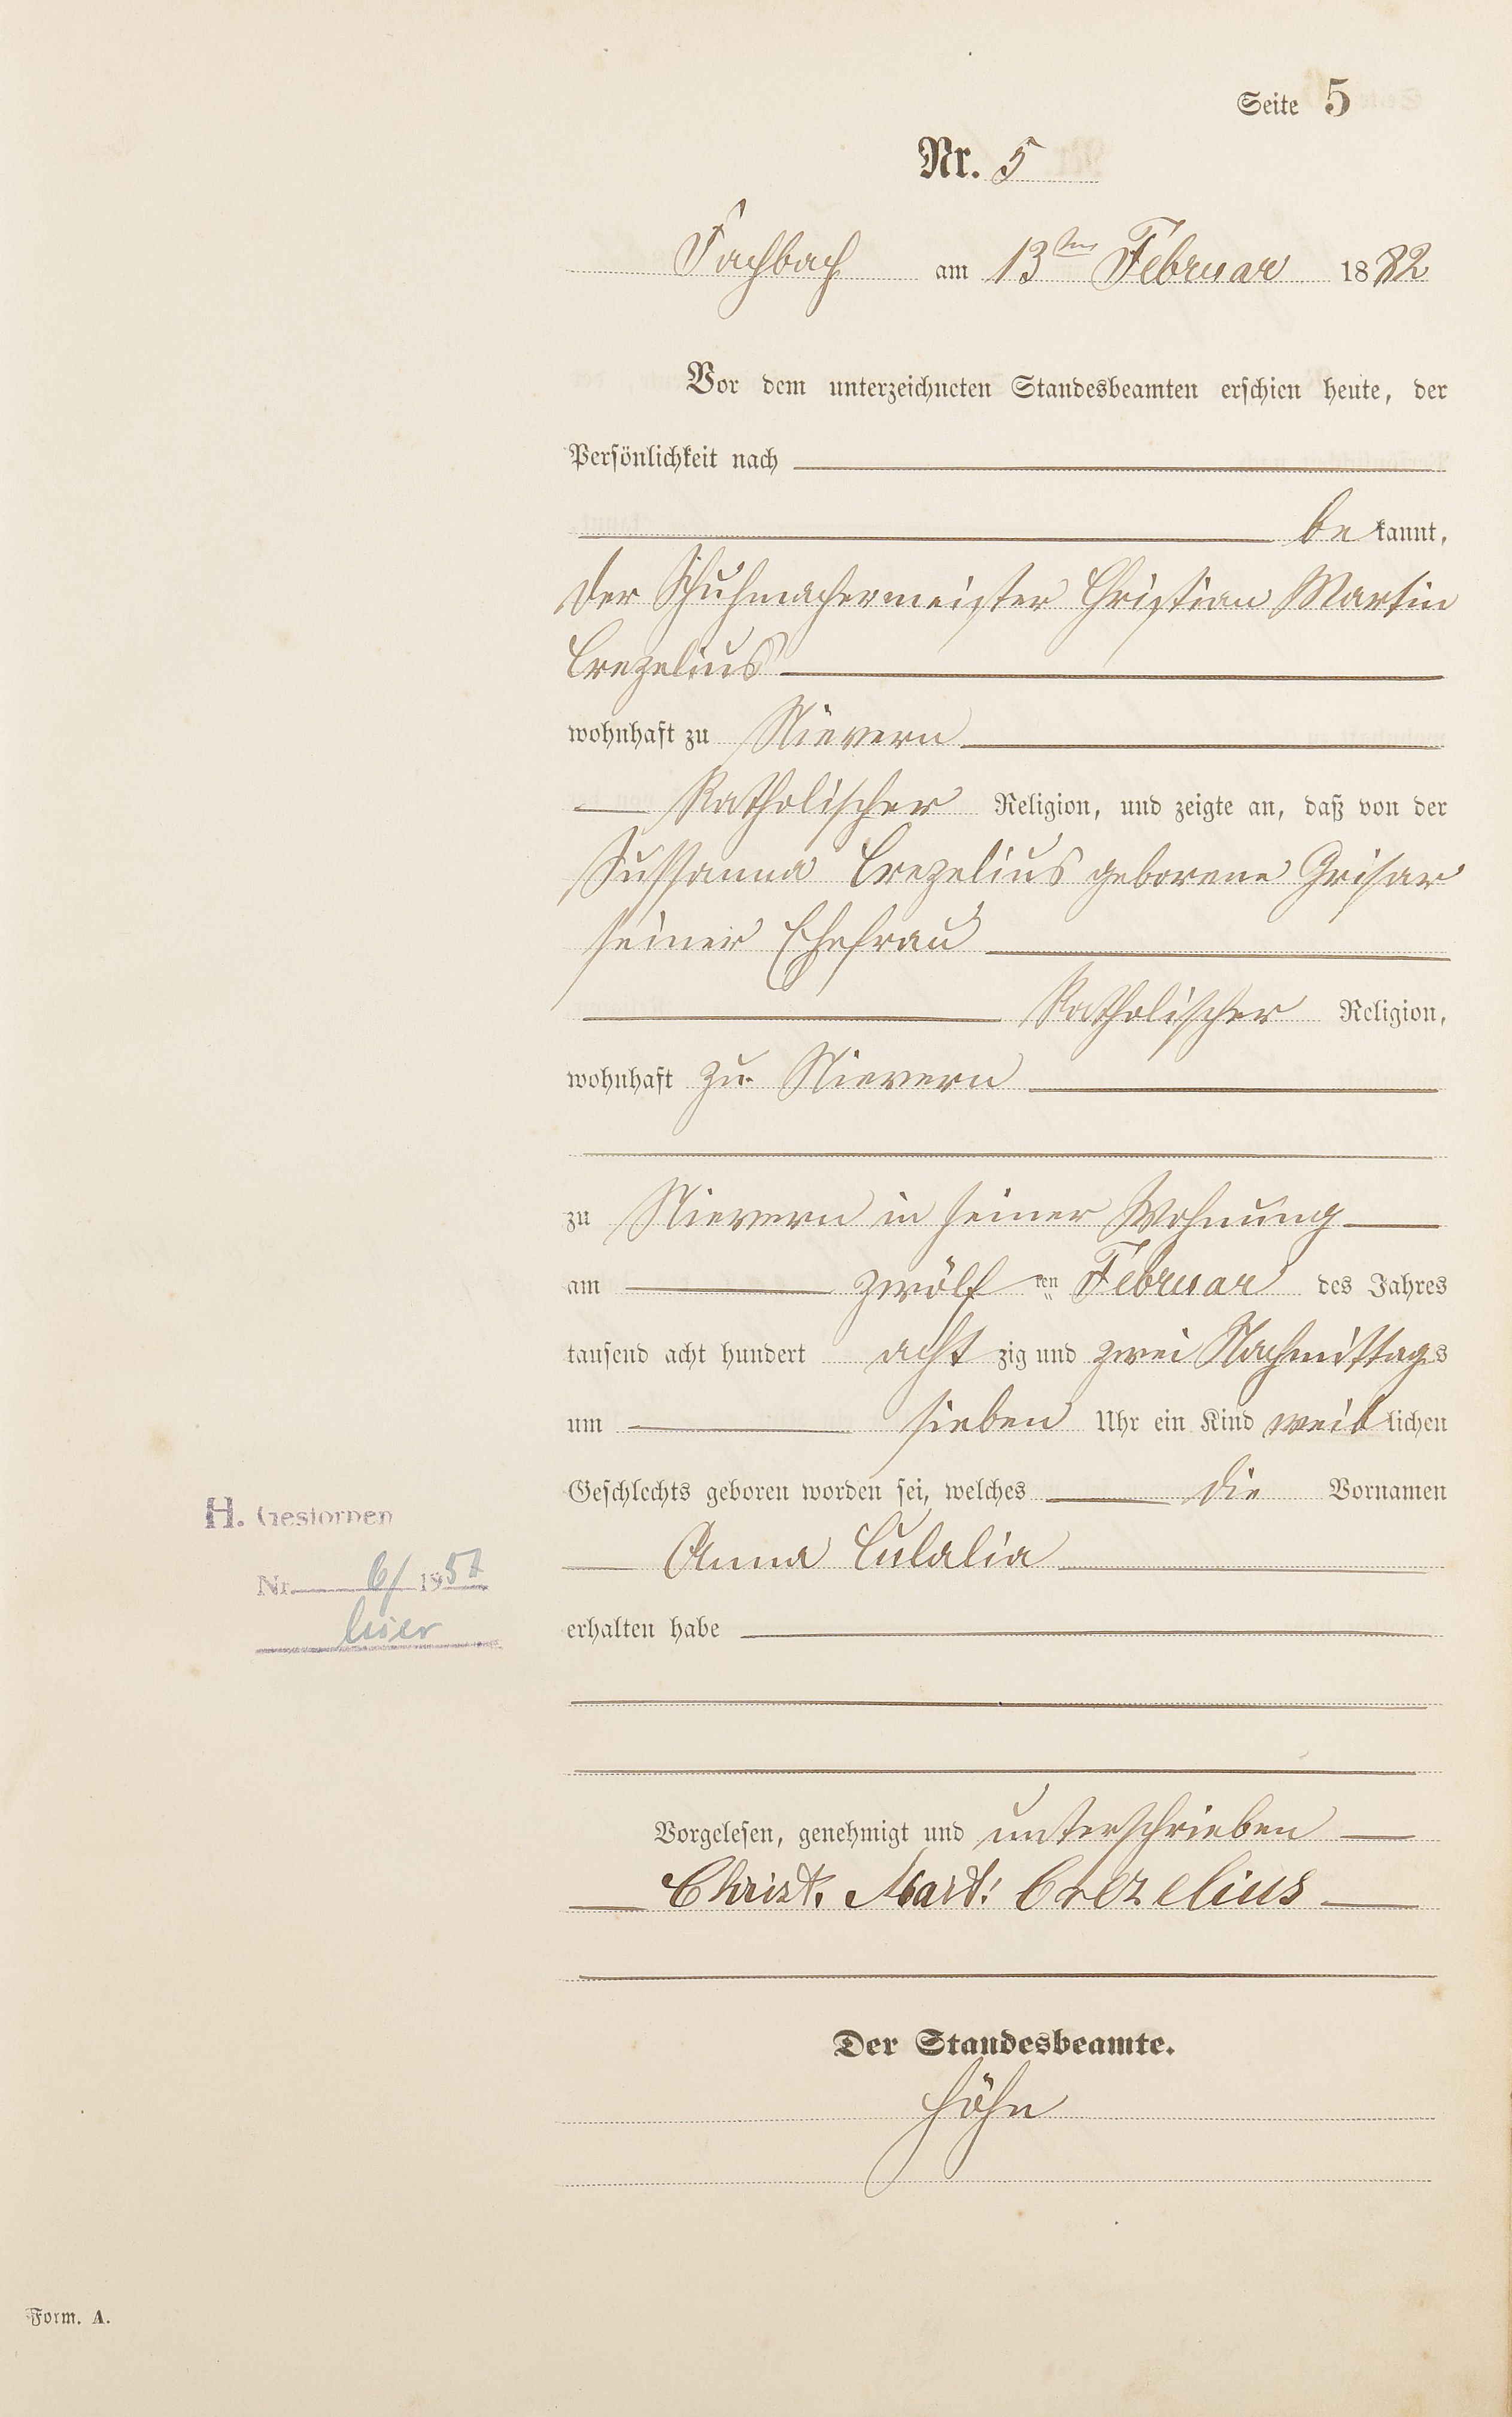 Seite 5
Nr. 5
Fachbach am 13ten Februar 1882
Vor dem unterzeichneten Standesbeamten erschien heute, der
Persönlichkeit nach
be kannt,
der Schuhmachermeister Christian Martin
Crezelius
wohnhaft zu Nievern
Katholischer Religion, und zeigte an, daß von der
Sussanna Crezelius geborene Grisar
seiner Ehefrau
Katholischer Religion,
wohnhaft zu Nievern
zu Nievern in seiner Wohnung
am zwölf ten Februar des Jahres
tausend acht hundert acht zig und zwei Nachmittags
um sieben Uhr ein Kind weib lichen
Geschlechts geboren worden sei, welches die Vornamen
H. Gestorben
Anna Eulalia
Nr. 6/ 195
hier
erhalten habe
Vorgelesen, genehmigt und unterschrieben
Christ. Mart: Crezelius
Der Standesbeamte.
Höhn
Form. A.